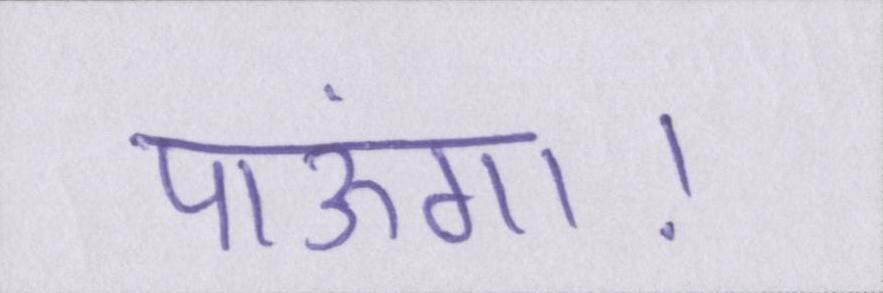 पाऊंगा!